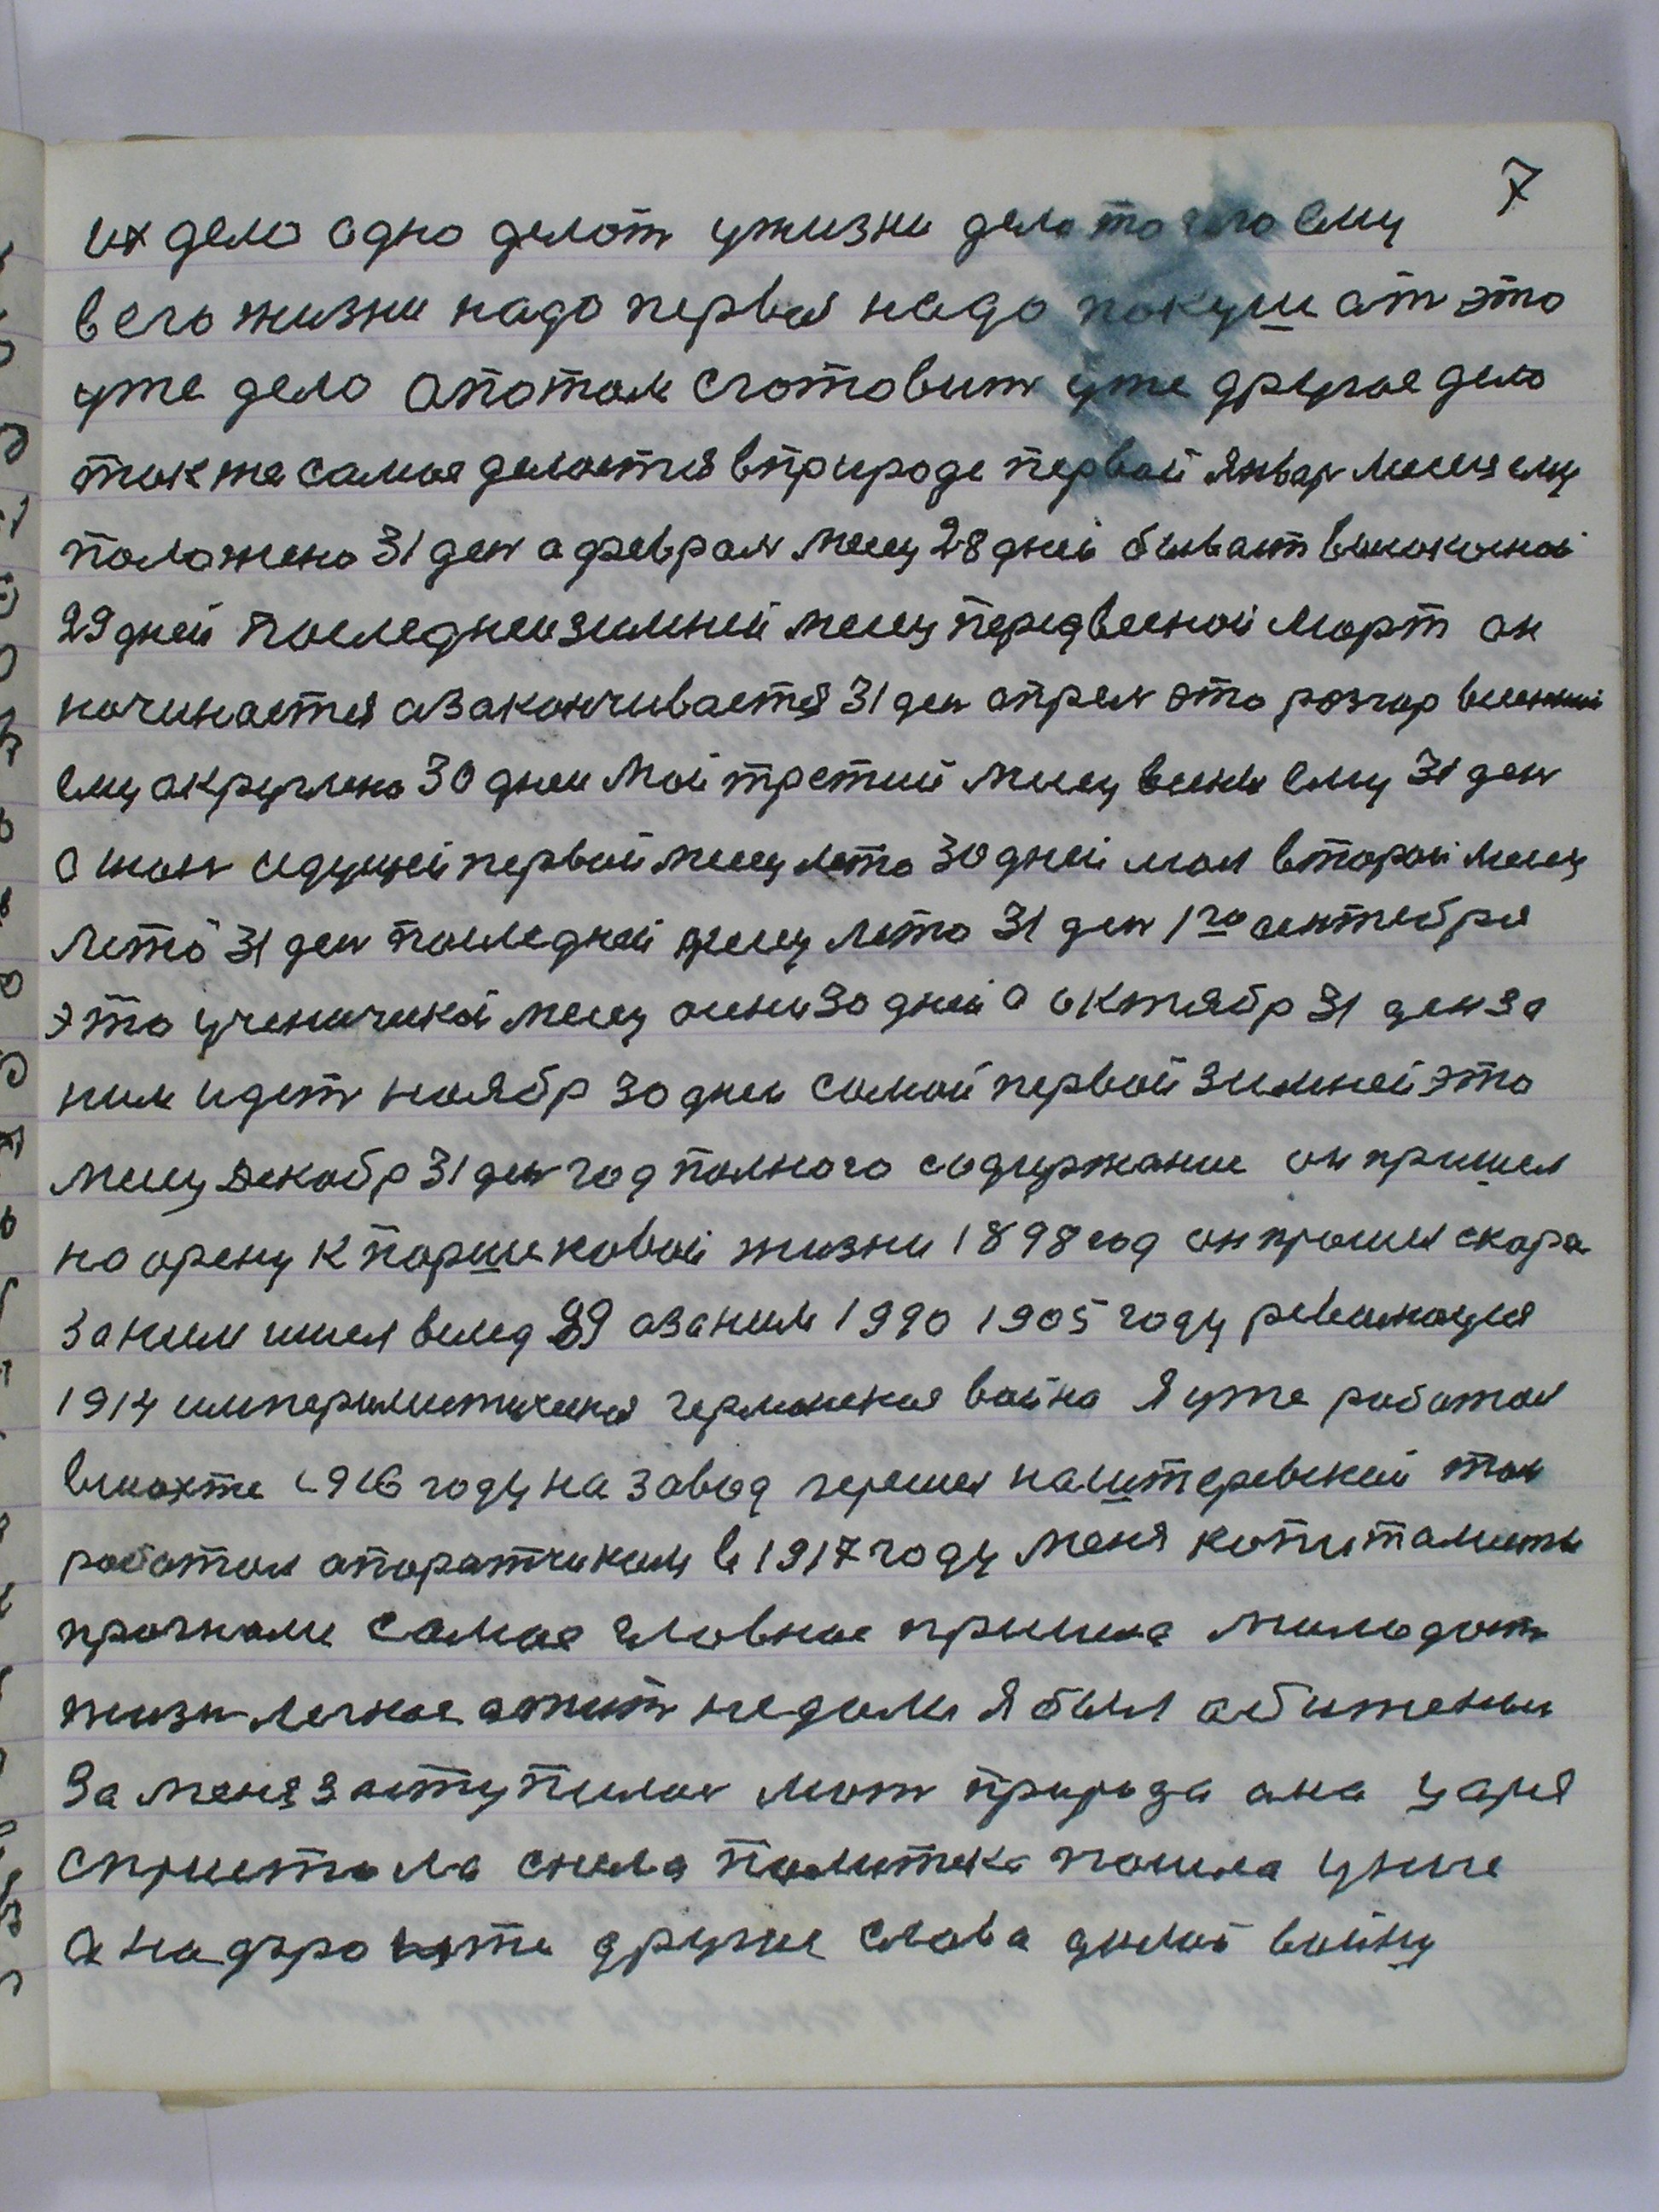 7
их дело одно делот ужизни дело то чего ему
в его жизни надо первыя надо покушат это
уже дело а потом сготовит уже другое дело
ток же самое делается в природе первой январ месяц ему
положено 31 ден а феврал месец 28 дней бывает високосной
29 дней последнеи зимней месец перед весной Март он
начинается а заканчивается 31 ден апрел это розгар весенний
ему акруглено 30 днеи Май третий месец весны ему 31 ден
а июн идущей первой месец лето 30 дней июл второй месец
лето 31 ден последней месец лето 31 ден 1го сентебря
это ученичкой месец осени 30 дней а октябр 31 ден за
ним идет ноябр 30 днеи самой первой зимней это
месец Декабр 31 ден год полного содержание он пришел
на арену к поршековой жизни 1898 год он прошел скора
за ним шел вслед 99 а за ним 1990 1905 году революция
1914 империлистическая германская война Я уже работал
в шахте 1916 году на завод перешел на литеревский там
работал апаратчиком в 1917 году меня копиталисты
прогнали самое гловное причина молодост
жизн легкое ажит недали я был абиженым
За меня заступилас мат природа ана царя
спристола снела политека пошла униче
а на фронте другие слова долой войну